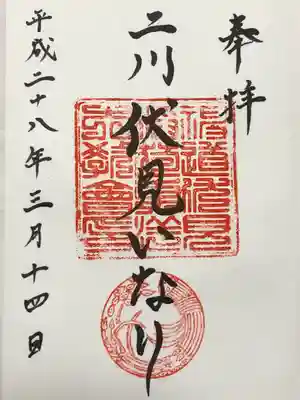 奉拝
二川伏見いなり
平成二十八年三月十四日